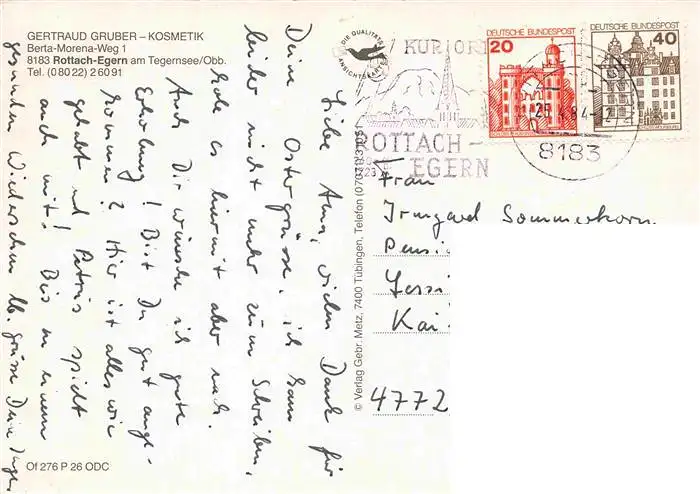 GERTRAUD GRUBER – KOSMETIK
Berta-Morena-Weg 1
8183 Rottach-Egern am Tegernsee/Obb.
Tel. (0 80 22) 2 60 91
DIE QUALITÄTS
ANSICHTSKARTE
KURORT
ROTTACH-
EGERN
DEUTSCHE BUNDESPOST
20
DEUTSCHE BUNDESPOST
40
4.84-12
8183
Liebe Anna, vielen Dank für
Deine Ostergrüsse. ich kam
leider nicht mehr zum Schreiben,
hole es hiermit aber nach.
Auch Dir wünsche ich gute
Erholung! Bist Du gut ange-
kommen? Hier ist alles wie
gehabt und Petrus spielt
auch mit! Bis zu einem
gesunden Wiedersehen lb. Grüsse Deine Inge
© Verlag Gebr. Metz, 7400 Tübingen, Telefon
Frau
Irmgard Sommerkorn
Pensi
Kai
4772
Of 276 P 26 ODC